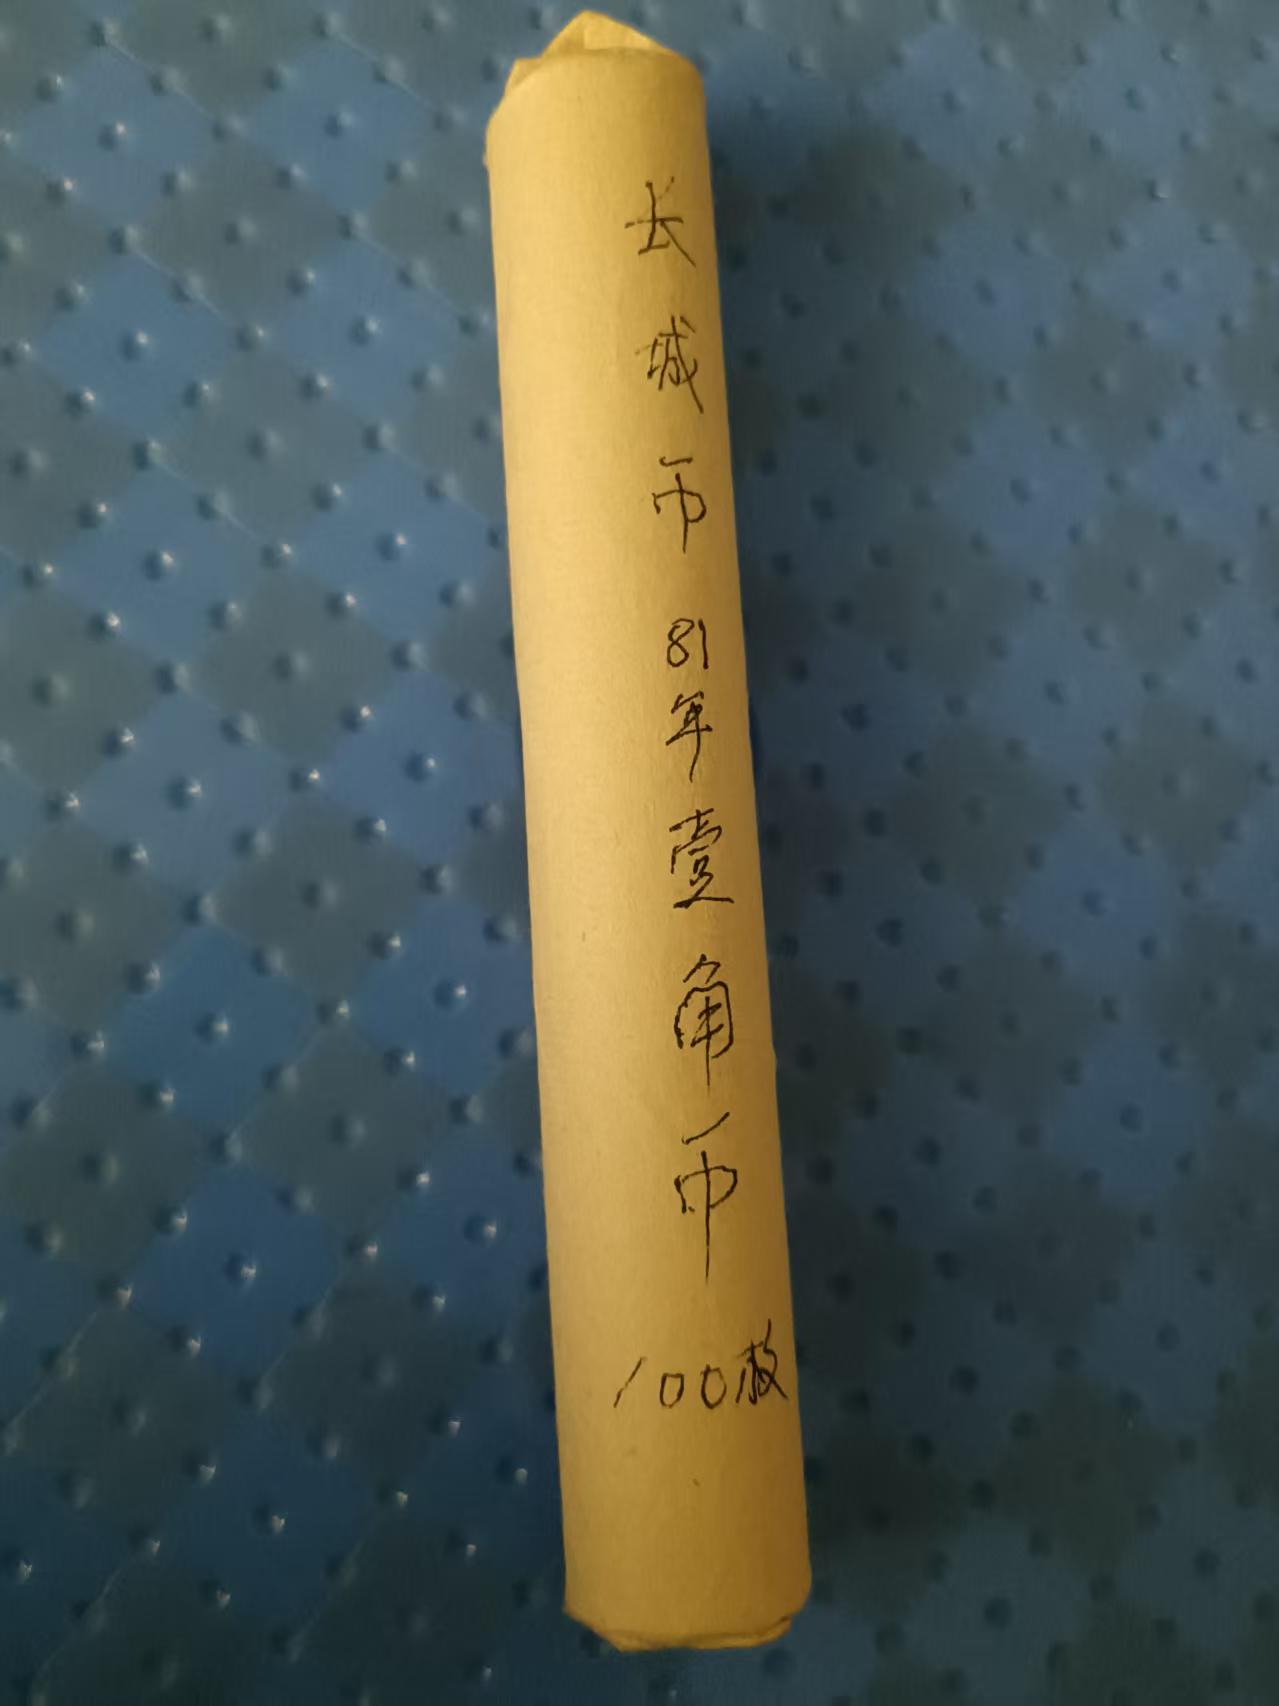 长城币 81年壹角币
100枚